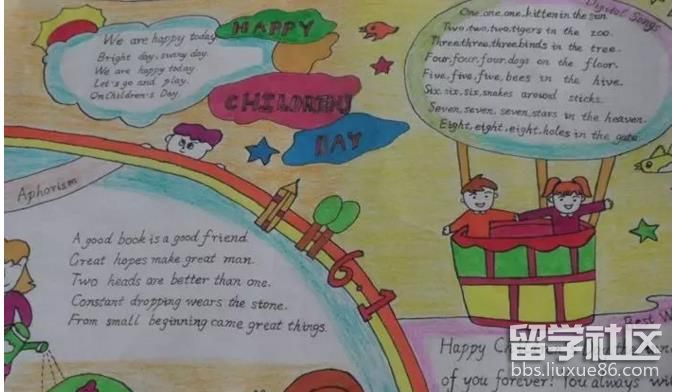 We are happy today
Bright day, sunny day.
We are happy today.
Let's go and play.
On Children's Day.
HAPPY
CHILDREN'S
DAY
Digital Songs
One.one.one,kitten in the sun.
Two,two,two,tigers in the zoo.
Three,three,three,birds in the tree.
Four,four,four,dogs on the floor.
Five,five,five,bees in the hive.
Six,six,six,snakes around sticks.
Seven,seven,seven,stars in the heaven.
Eight,eight,eight,holes in the gate.
Aphorism
A good book is a good friend.
Great hopes make great man.
Two heads are better than one.
Constant dropping wears the stone.
From small beginning came great things.
6.1
Best W
Happy
of you forever! You always
留学社区
bbs.liuxue86.com